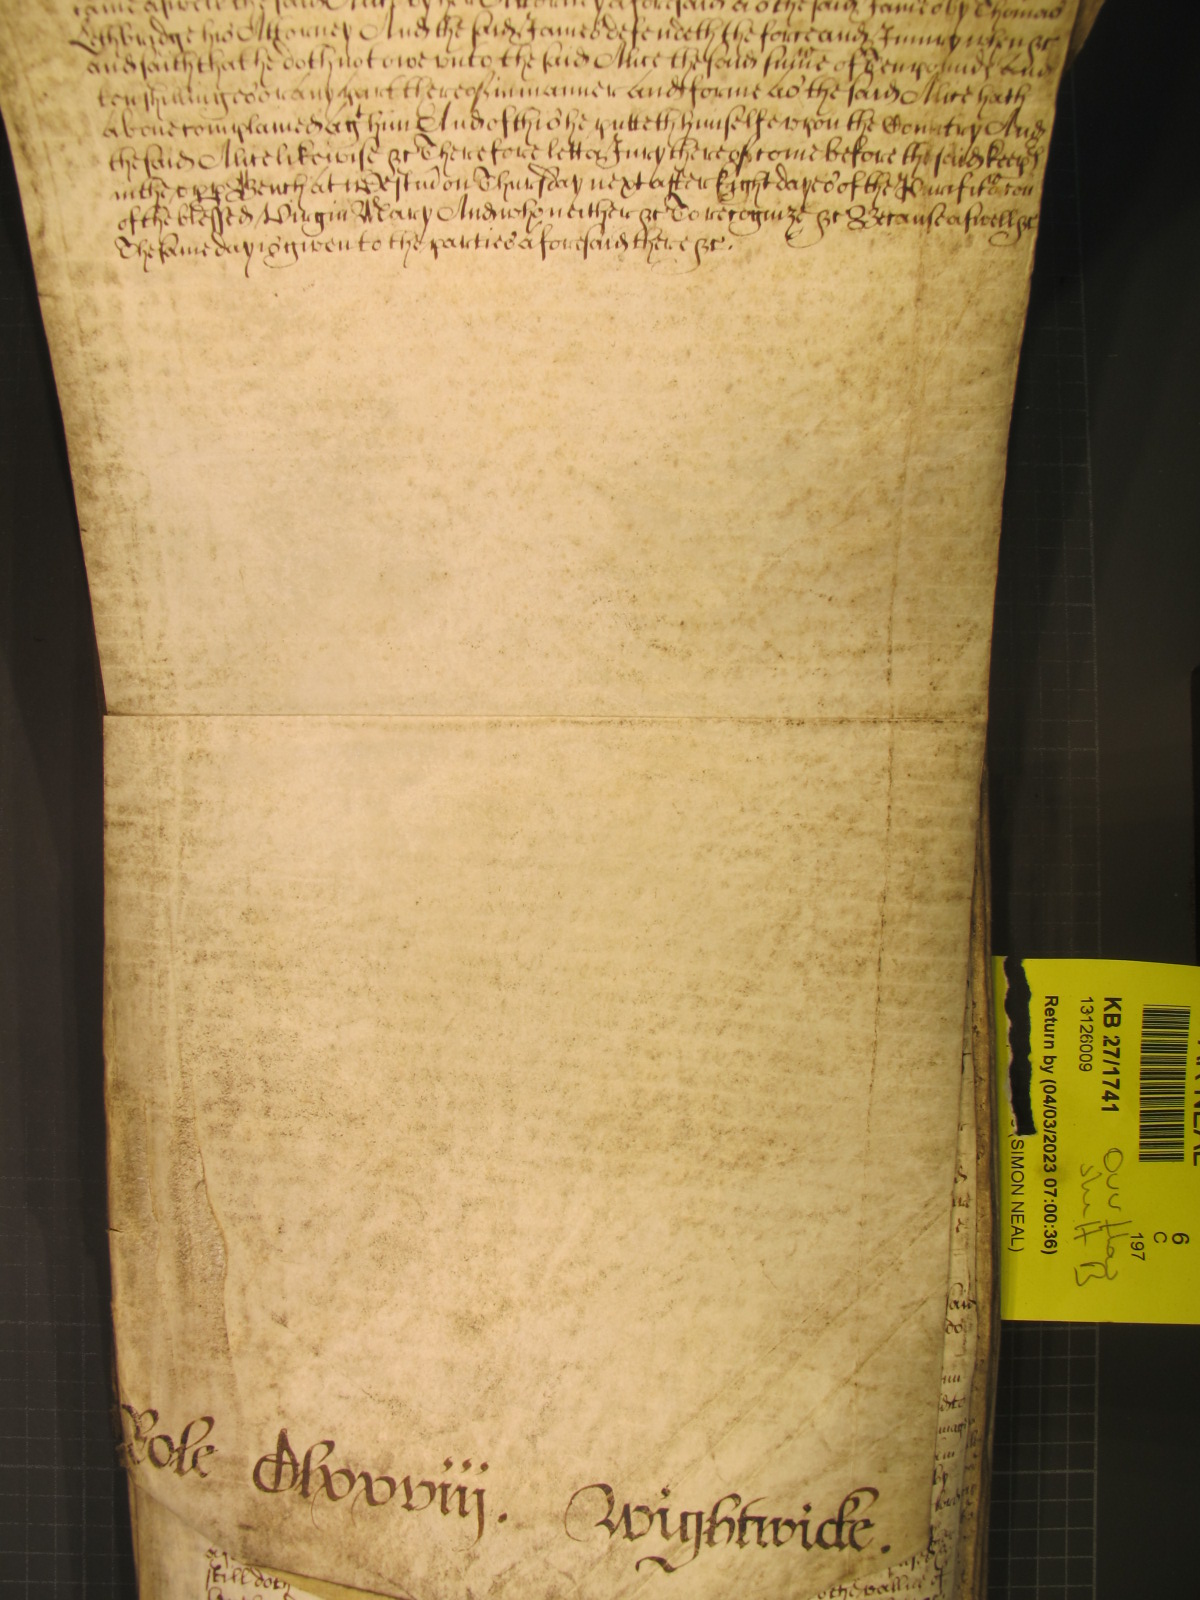 came aswell the said Alice by her Attorney aforesaid as the said James by Thomas
Lethbridge his Attorney And the said James defendeth the force and Iniury when &c
and saith that he doth not owe unto the said Alice the said sume of Ten pounds and
ten shillings or any part thereof in manner and forme as the said Alice hath
above complained agt him And of this he putteth himselfe upon the Country And
the said Alice likewise &c Therefore lett a Jury thereof come before the said keeprs
in the upp Bench at Westm on Thursday next after Eight dayes of the Purificacon
of the blessed Virgin Mary And who neither &c To recognize &c Because aswell &c
The same day is given to the parties aforesaid there &c.
Role Clxxviij. Wightwicke.
still doth
the vallue of
KB 27/1741
13126009
Return by (04/03/2023 07:00:36)
(SIMON NEAL)
6
C
197